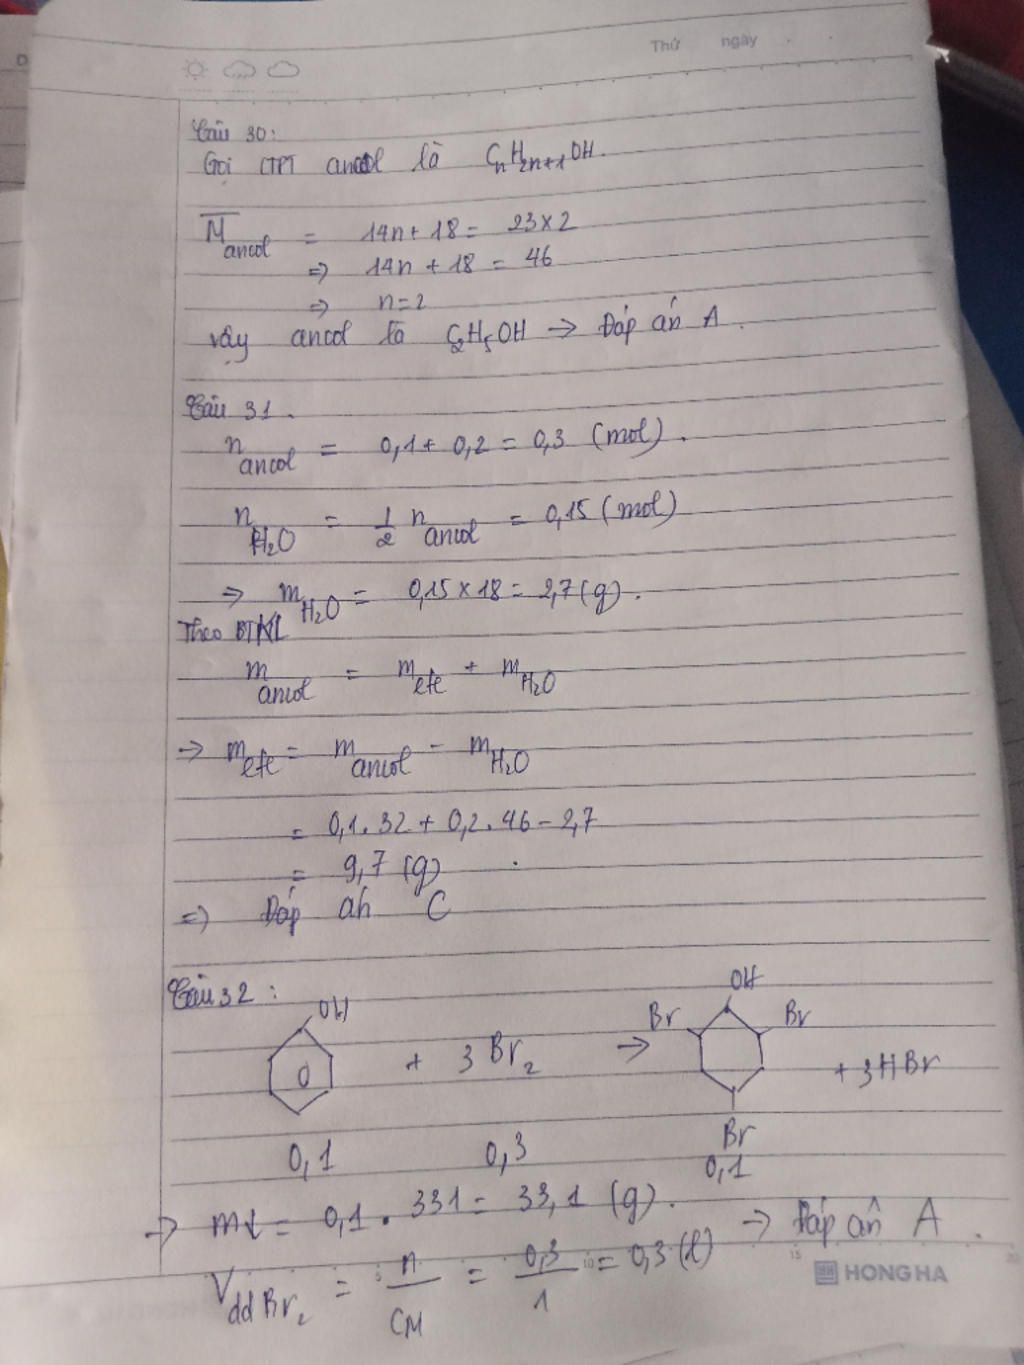 Thứ ngày
Câu 30:
Gọi CTPT ancol là CnH2n+1OH.
M ancol = 14n + 18 = 23 x 2
=> 14n + 18 = 46
=> n = 2
vậy ancol là C2H5OH → Đáp án A.
Câu 31.
n ancol = 0,1 + 0,2 = 0,3 (mol).
n H2O = 1/2 n ancol = 0,15 (mol)
=> m H2O = 0,15 x 18 = 2,7 (g).
Theo BTKL
m ancol = m ete + m H2O
→ m ete = m ancol - m H2O
= 0,1. 32 + 0,2. 46 - 2,7
= 9,7 (g)
=> Đáp án C
Câu 32:
OH + 3Br2 → OH Br Br Br + 3HBr
0,1 0,3 0,1
→ m↓ = 0,1 . 331 = 33,1 (g).
V dd Br2 = n/CM = 0,3/1 = 0,3 (l) → Đáp án A.
5 10 15 20
HONG HA